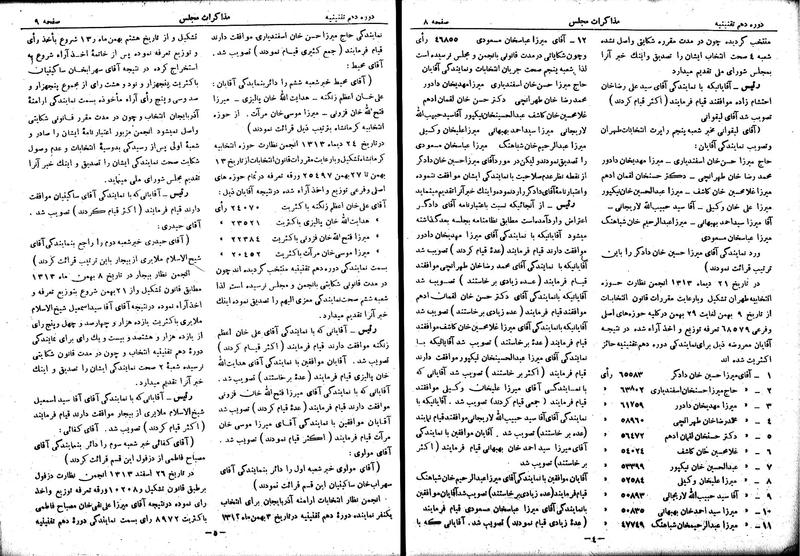 دوره دهم تقنینیه
مذاکرات مجلس
صفحه ۸
منتخب گردیده چون در مدت مقرره شکایتی واصل نشده
شعبه ٤ صحت انتخاب ایشان را تصدیق و اینك خبر آنرا
بمجلس شورای ملی تقدیم میدارد
رئیس - آقایانیکه با نمایندگی آقای سید علی رضاخان
احتشام زاده موافقند قیام فرمایند (اکثر قیام کردند)
تصویب شد آقای لیقوانی
(آقای لیقوانی خبر شعبه پنجم راجع بانتخابات طهران
و تصویب نمایندگی آقایان:
حاج میرزا حسن خان اسفندیاری - میرزا مهدیخان دادور
محمد رضا خان طهرانچی - دکتر حسنخان لقمان ادهم
میرزا غلامحسین خان کاشف - عبدالحسین خان نیکپور
میرزا علی خان وکیلی - آقا سید حبیب الله لاریجانی -
آقا میرزا سید احمد بهبهانی - میرزا عبدالرحیم خان شباهنگ
میرزا عباسخان مسعودی
ورد نمایندگی میرزا حسین خان دادگر را باین
ترتیب قرائت نمودند)
در تاریخ ۲۱ دیماه ۱۳۱۳ انجمن نظارت حوزه
انتخابیه طهران تشکیل و بارعایت مقررات قانون انتخابات
از صبح ۹ بهمن لغایت ۲۹ بهمن در کلیه حوزه‌های اصل
و فرعی ۶۸۵۷۹ تعرفه توزیع و اخذ آراء شده در نتیجه
آقایان معروضه ذیل برای نمایندگی دوره دهم تقنینیه حائز
اکثریت شده اند
۱ - آقای میرزا حسین خان دادگر ۶۵۵۸۳ رأی
۲ - » حاج میرزا حسنخان اسفندیاری ۶۳۸۰۲ »
۳ - » میرزا مهدیخان دادور ۶۱۷۵۹ »
٤ - » محمدرضا خان طهرانچی ۵۸۹۶۰ »
۵ - » دکتر حسنخان لقمان ادهم ۵۶۴۷۲ »
۶ - » غلامحسین خان کاشف ۵۴۰۲۴ »
۷ - » عبدالحسین خان نیکپور ۵۳۳۹۹ »
۸ - » میرزا علیخان وکیلی ۵۲۰۸۴ »
۹ - » آقا سید حبیب الله لاریجانی ۵۰۸۹۳ »
۱۰ - » میرزا سید احمد خان بهبهانی ۵۰۸۳۵ »
۱۱ - » میرزا عبدالرحیمخان شباهنگ ۴۷۷۴۹ »
۱۲ - آقای میرزا عباسخان مسعودی ۴۶۸۵۵ رأی
و چون شکایاتی در مدت قانونی بانجمن و مجلس نرسیده است
لذا شعبه پنجم صحت جریان انتخابات و نمایندگی آقایان
حاج میرزا حسن خان اسفندیاری میرزا مهدیخان دادور
محمدرضا خان طهرانچی دکتر حسن خان لقمان ادهم
غلامحسین خان کاشف عبدالحسین خان نیکپور آقاسید حبیب الله
لاریجانی میرزا سید احمد بهبهانی میرزا علیخان وکیلی
میرزا عبدالرحیم خان شباهنگ میرزا عباسخان مسعودی
را تصدیق نمودند ولیکن در مورد آقای میرزا حسین خان دادگر
از نقطه نظر عدم صلاحیت با نمایندگی ایشان موافقت نموده
و اعتبارنامه آقای دادگر را رد نموده و اینك خبر آنرا تقدیم مینماید
رئیس - از آنجائیکه نسبت باعتبارنامه آقای دادگر
اعتراض وارد آمده است مطابق نظامنامه بجلسه بعد گذاشته
میشود آقایانیکه با نمایندگی آقای میرزا مهدیخان دادور
موافقت دارند قیام فرمایند (عدۀ قیام کردند) تصویب شد
آقایانیکه با نمایندگی آقای محمد رضا خان طهرانچی موافقند
قیام فرمایند (عده زیادی بر خاستند) تصویب شد
آقایانیکه با نمایندگی آقای دکتر حسن خان لقمان ادهم
موافقند قیام فرمایند (عده زیادی بر خاستند) تصویب شد
آقایانیکه با نمایندگی آقای میرزا غلامحسین خان کاشف موافقند
قیام فرمایند (عده برخاستند) تصویب شد آقایانیکه با
نمایندگی آقای عبدالحسین خان نیکپور موافقت دارند قیام
فرمایند (اکثر بر خاستند) تصویب شد آقایانیکه
با نمایندگی آقای میرزا علیخان وکیلی موافقند
قیام فرمایند (جمعی قیام کردند) تصویب شد آقایانیکه با
نمایندگی آقای آقا سید حبیب الله لاریجانی موافقند قیام نمایند
(عده بر خاستند) تصویب شد. آقایان موافقین با نمایندگی
آقای میرزا سید احمد خان بهبهانی قیام فرمایند (عده
برخاستند) تصویب شد
آقایان موافقین با نمایندگی آقای میرزا عبدالرحیم خان شباهنگ
قیام فرمایند (عده زیادی بر خاستند) تصویب شد آقایان موافقین
با نمایندگی آقای میرزا عباسخان مسعودی قیام فرمایند
(عدۀ زیادی قیام نمودند) تصویب شد. آقایانی که با
- ٤ -
دوره دهم تقنینیه
مذاکرات مجلس
صفحه ۹
نمایندگی حاج میرزا حسن خان اسفندیاری موافقت دارند
قیام فرمایند (جمع کثیری قیام نمودند) تصویب شد.
آقای محیط:
(آقای محیط خبر شعبه ششم را دائر بنمایندگی آقایان:
علی خان اعظم زنگنه - هدایت الله خان پالیزی - میرزا
فتح الله خان فزونی - میرزا موسی خان مرآت. از حوزه
انتخابیه کرمانشاه بترتیب ذیل قرائت نمودند)
در تاریخ ۲۴ دیماه ۱۳۱۳ انجمن نظارت حوزه انتخابیه
کرمانشاه تشکیل و بارعایت مقررات قانون انتخابات از تاریخ ۱۳
بهمن تا ۲۷ بهمن ۲۵۴۹۷ ورقه تعرفه در تمام حوزه های
اصلی و فرعی توزیع و اخذ آراء شده در نتیجه آقایان ذیل:
آقای علی خان اعظم زنگنه با کثریت ۲۴۰۷۰ رأی
» هدایت الله خان پالیزی با کثریت ۲۳۵۲۱ »
» میرزا فتح الله خان فزونی با کثریت ۲۲۳۸۴ »
» میرزا موسی خان مرآت با کثریت ۲۰۴۵۲ »
بسمت نمایندگی دوره دهم تقنینیه منتخب گردیده اند چون
در مدت قانونی شکایتی بانجمن و مجلس نرسیده است لذا
شعبه ششم صحت نمایندگی معزی الیهم را تصدیق نموده اینك
خبر آنرا تقدیم میدارد.
رئیس - آقایانی که با نمایندگی آقای علی خان اعظم
زنگنه موافقت دارند قیام فرمایند (اکثر قیام کردند)
تصویب شد. آقایان موافقین با نمایندگی آقای هدایت الله
خان پالیزی قیام فرمایند (عدۀ بر خاستند) تصویب شد.
آقایانی که با نمایندگی آقای میرزا فتح الله خان فزونی
موافقت دارند قیام فرمایند (عدۀ قیام نمودند) تصویب شد.
آقایان موافقین با نمایندگی آقای میرزا موسی خان
مرآت قیام فرمایند (اکثر قیام نمودند) تصویب شد.
آقای مولوی:
(آقای مولوی خبر شعبه اول را دائر بنمایندگی آقای
سهراب خان ساکنیان این قسم قرائت نمودند)
انجمن نظار انتخابات ارامنه آذربایجان برای انتخاب
یکنفر نماینده دورۀ دهم تقنینیه در تاریخ ۳ بهمن ماه ۱۳۱۳
تشکیل و از تاریخ هشتم بهمن ماه ۱۳ شروع بأخذ رأی
و توزیع تعرفه نموده پس از خاتمۀ اخذ آراء شروع
استخراج کرده در نتیجه آقای سهراب خان ساکنیان
با کثریت پنجهزار و نود و هشت رأی از مجموع پنجهزار و
صد و سی و پنج رأی آراء مأخوذه بسمت نمایندگی ارامنۀ
آذربایجان انتخاب و چون در مدت مقرر قانونی شکایتی
واصل نمیشود انجمن مزبور اعتبارنامۀ ایشان را صادر و
شعبۀ اولی پس از رسیدگی بدوسیۀ انتخابات و عدم وصول
شکایت صحت نمایندگی ایشان را تصدیق و اینك خبر آنرا
تقدیم مجلس شورای ملی مینماید.
رئیس - آقایانی که با نمایندگی آقای ساکنیان موافقت
دارند قیام فرمایند (اکثر قیام کردند) تصویب شد.
آقای حیدری:
(آقای حیدری خبر شعبه دوم را راجع بنمایندگی آقای
شیخ الاسلام ملایری از بیجار باین ترتیب قرائت کردند)
انجمن نظار بیجار در تاریخ ۸ بهمن ماه ۱۳۱۳
مطابق قانون تشکیل و از ۲۱ بهمن شروع بتوزیع تعرفه و
اخذ آراء نموده در نتیجه آقای آقا سید اسمعیل شیخ الاسلام
ملایری با کثریت یازده هزار و چهارصد و چهل و پنج رأی
از یازده هزار و هشتصد و بیست و یك رأی برای نمایندگی
دورۀ دهم تقنینیه انتخاب و چون در مدت قانونی شکایتی
نرسیده شعبۀ ۲ صحت انتخاب ایشان را تصدیق و اینك
خبر آنرا تقدیم میدارد.
رئیس - آقایانی که با نمایندگی آقای آقا سید اسمعیل
شیخ الاسلام ملایری موافقت دارند قیام فرمایند
(عدۀ قیام نمودند) تصویب شد. آقای کفائی:
(آقای کفائی خبر شعبه سوم را دائر بنمایندگی آقای
مصباح فاطمی از دزفول این قسم قرائت کردند)
در تاریخ ۲۶ اسفند ۱۳۱۳ انجمن نظارت دزفول
برطبق قانون تشکیل و از ۱۰۲۰۸ ورقه تعرفه توزیع و اخذ
رأی نموده در نتیجه آقای میرزا علی نقی خان مصباح فاطمی
با کثریت ۸۹۷۲ رأی بسمت نمایندگی دورۀ دهم تقنینیه
- ۵ -